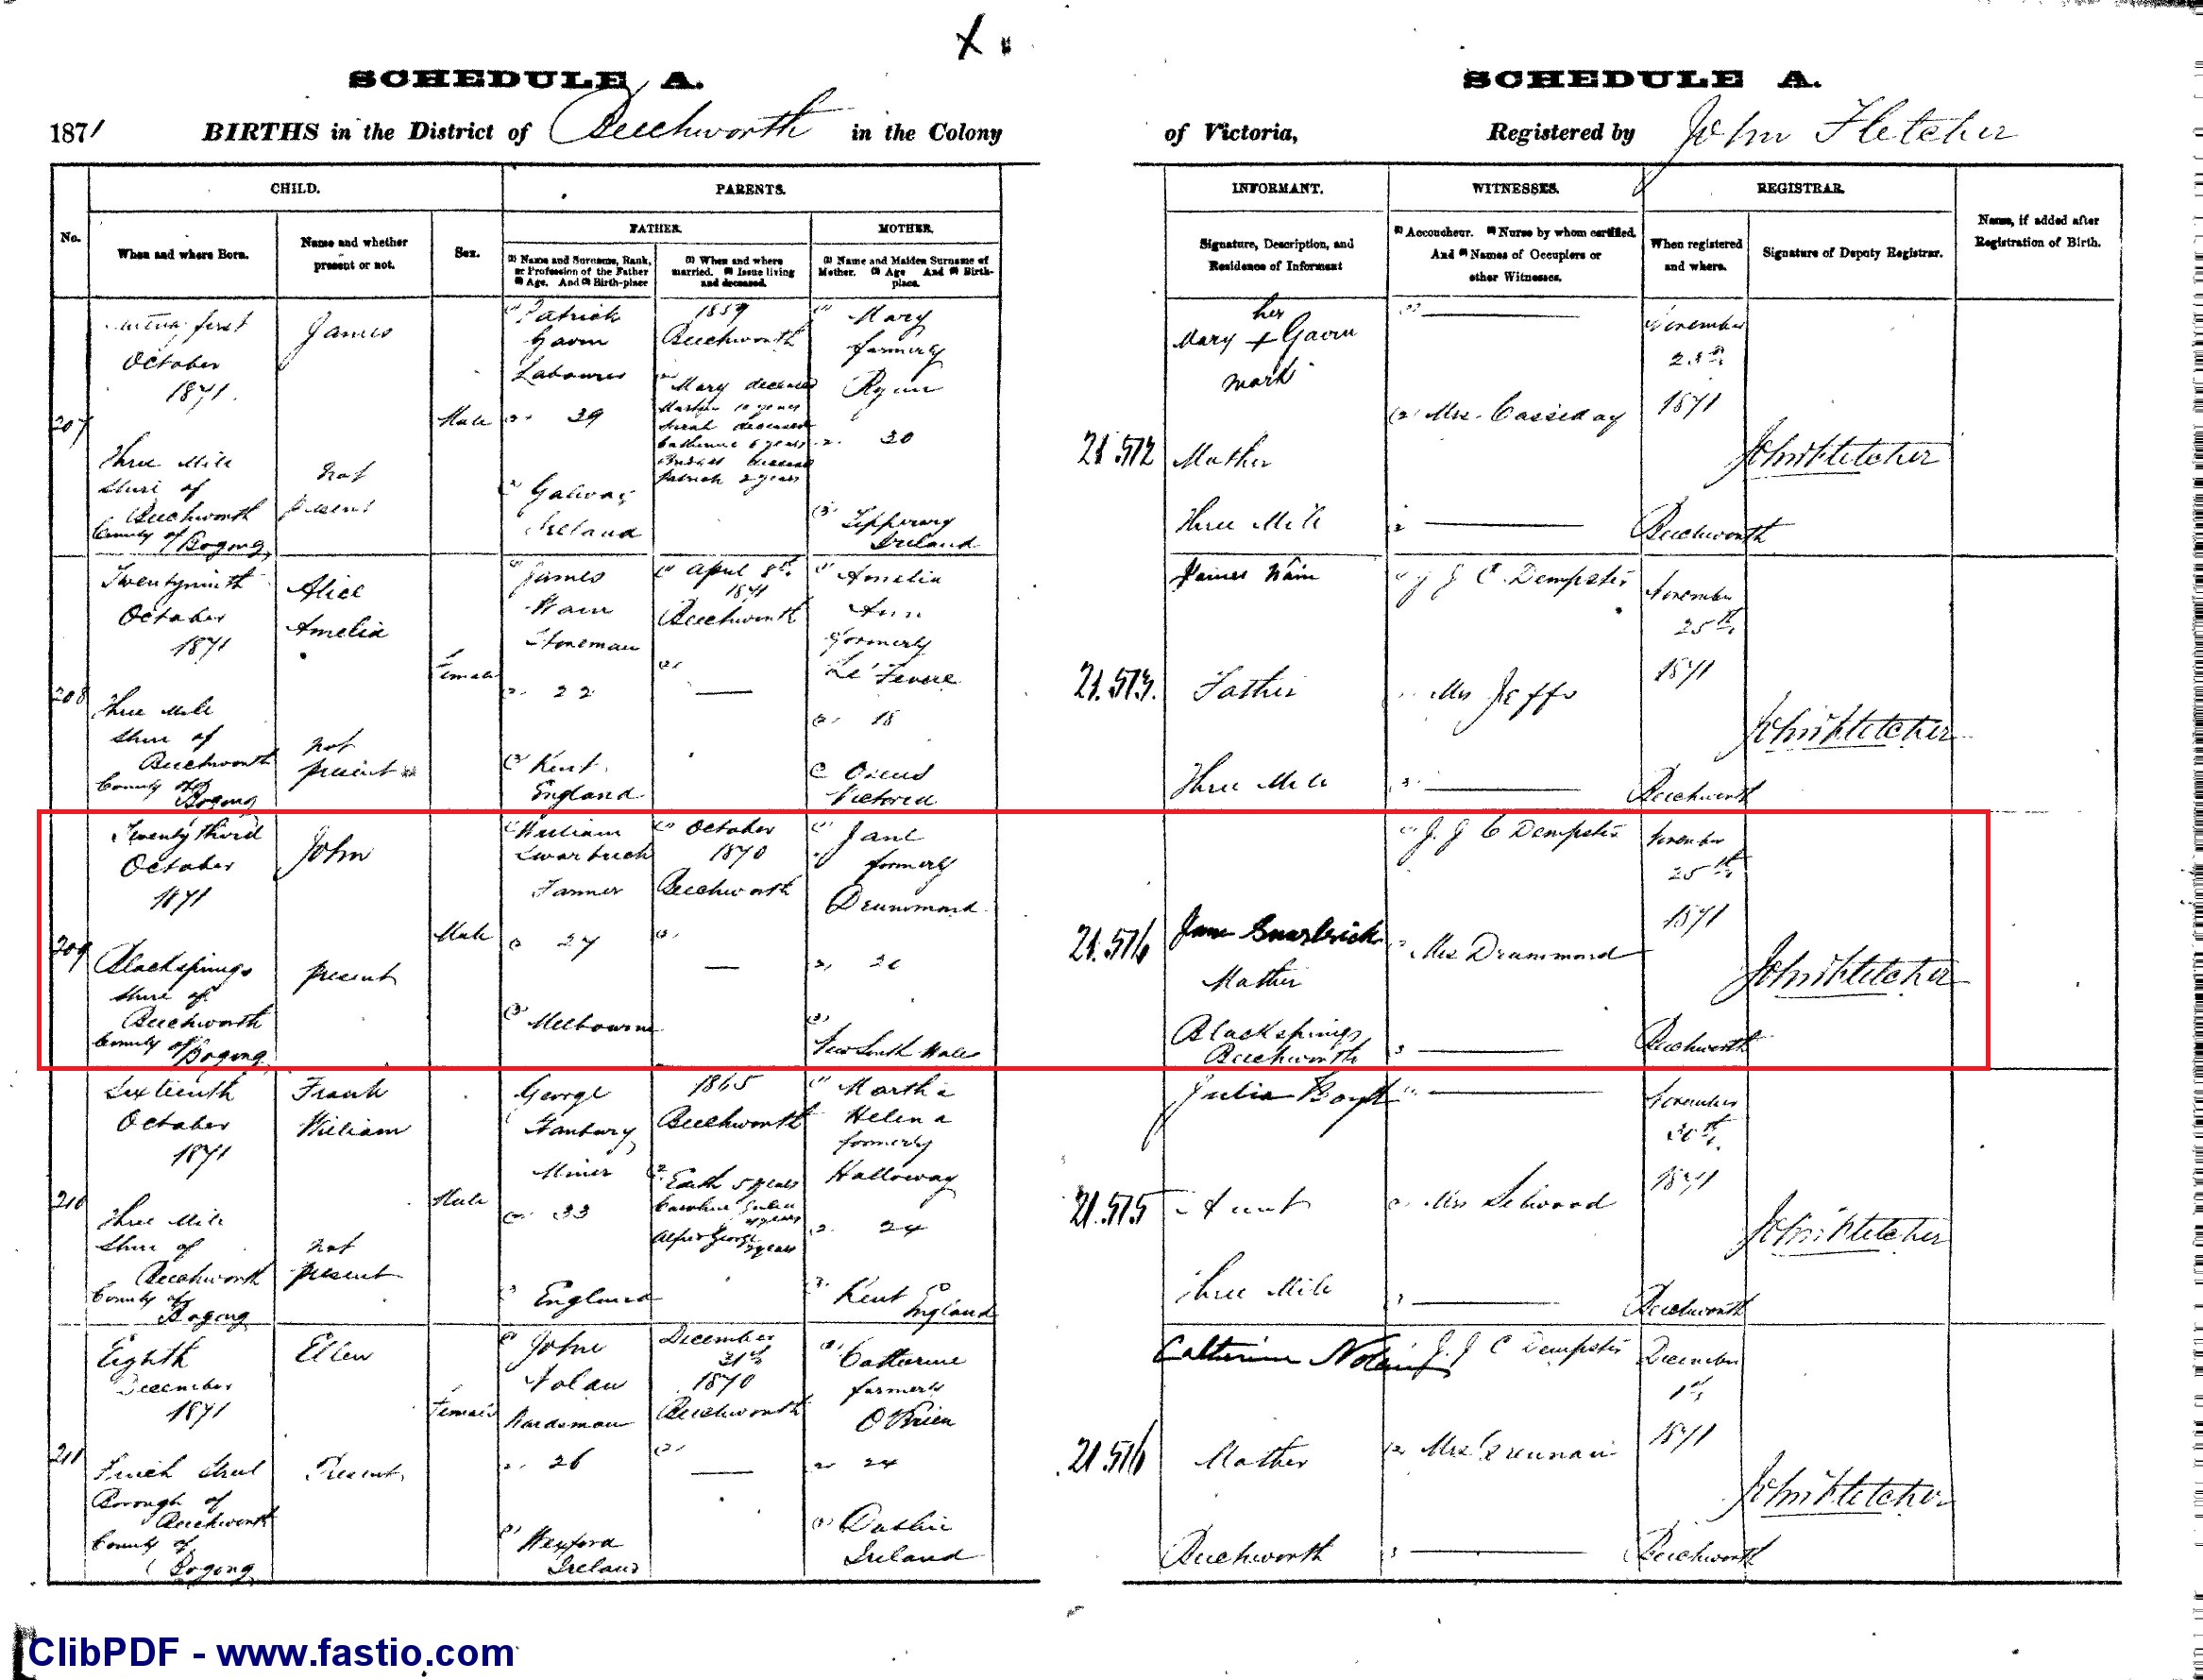 SCHEDULE A.
SCHEDULE A.
1871 BIRTHS in the District of Beechworth in the Colony
of Victoria, Registered by John Fletcher
CHILD.
PARENTS.
INFORMANT.
WITNESSES.
REGISTRAR.
No.
When and where Born.
Name and whether
present or not.
Sex.
FATHER.
MOTHER.
(1) Name and Surname, Rank,
or Profession of the Father
(2) Age. And (3) Birth-place
(1) When and where
married. (2) Issue living
and deceased.
(1) Name and Maiden Surname of
Mother. (2) Age And (3) Birth-
place.
Signature, Description, and
Residence of Informant
(1) Accoucheur. (2) Nurse by whom certified.
And (3) Names of Occupiers or
other Witnesses.
When registered
and where.
Signature of Deputy Registrar.
Name, if added after
Registration of Birth.
207
first
October
1871.
Three Mile
Shire of
Beechworth
County of
Bogong
James
not
present
Male
(1) Patrick
Gavin
Labourer
(2) 39
(3) Galway
Ireland
1859
Beechworth
(2) Mary deceased
10 years
Sarah deceased
Catherine 6 years
Bridget deceased
Patrick 2 years
(1) Mary
formerly
Ryan
(2) 30
(3) Tipperary
Ireland
21.572
her
Mary + Gavin
mark
Mother
Three Mile
(1)
(2) Mrs. Cassiday
3
November
1871
Beechworth
John Fletcher
208
Twentyninth
October
1871
Three Mile
Shire of
Beechworth
County of
Bogong
Alice
Amelia
not
present
Female
(1) James
Wain
Stoneman
(2) 22
(3) Kent
England
(1) April 8th
1871
Beechworth
(2)
(1) Amelia
Ann
formerly
Le'Fevre
(2) 18
(3) Ovens
Victoria
21.573.
James Wain
Father
Three Mile
(1) J J C. Dempster
Mrs Jeffs
3
November
25th
1871
Beechworth
John Fletcher
209
Twenty third
October
1871
Blacksprings
Shire of
Beechworth
County of
Bogong
John
present
Male
(1) William
Swarbrick
Farmer
(2) 27
(3) Melbourne
(1) October
1870
Beechworth
(2)
(1) Jane
formerly
Drummond
(2)
(3)
New South Wales
Jane Swarbrick
Mother
Blacksprings
Beechworth
(1) J. J C Dempster
2 Mrs Drummond
3
November
25th
1871
Beechworth
John Fletcher
210
Sixteenth
October
1871
Three Mile
Shire of
Beechworth
County of
Bogong
Frank
William
not
present
Male
George
Stanbury
Miner
(2) 33
3 England
1865
Beechworth
Edith 5 years
Caroline Julia
years
Alfred George
years
(1) Martha
Helena
formerly
Halloway
2. 24
3. Kent
England
21.575
Julia Boyd
Aunt
Three Mile
(1)
2 Mrs Selwood
3
November
30th
1871
Beechworth
John Fletcher
211
Eighth
December
1871
Finch Street
Borough of
Beechworth
County of
Bogong
Ellen
Present
Female
(1) John
Nolan
Wardsman
2. 26
(3) Wexford
Ireland
December
31st
1870
Beechworth
(2)
(1) Catherine
formerly
O'Brien
2 24
(3) Dublin
Ireland
21.576
Catherine Nolan
Mother
Beechworth
J. J C Dempster
(2) Mrs
3
December
1st
1871
Beechworth
John Fletcher
ClibPDF - www.fastio.com